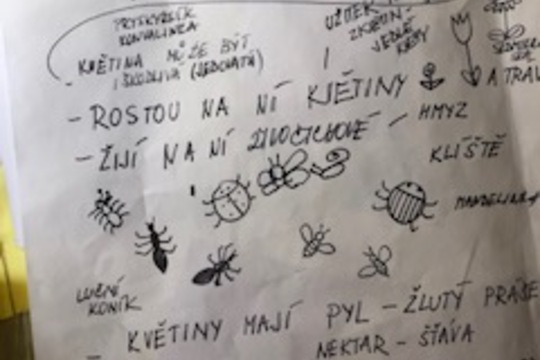 PRYSKYŘNÍK
KONVALINKA
UŽITEK
- KVĚTINA MŮŽE BÝT
I ŠKODLIVÁ (JEDOVATÁ)
JEDLÉ
- ROSTOU NA NÍ KVĚTINY A TRÁV
- ŽIJÍ NA NÍ ŽIVOČICHOVÉ - HMYZ
KLÍŠTĚ
MANDELINKA
LUČNÍ
KONÍK
- KVĚTINY MAJÍ PYL - ŽLUTÝ PRÁŠE
NEKTAR - ŠŤÁVA